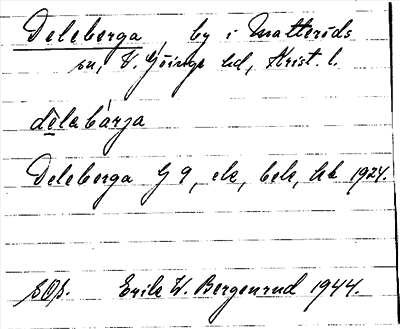 Deleberga, by i Matteröds
sn, V. Göinge hd, Krist. l.
delabärja
Deleberga G 9, ek, bek, kb 1924.
sOp. Erik W. Bergenrud 1944.